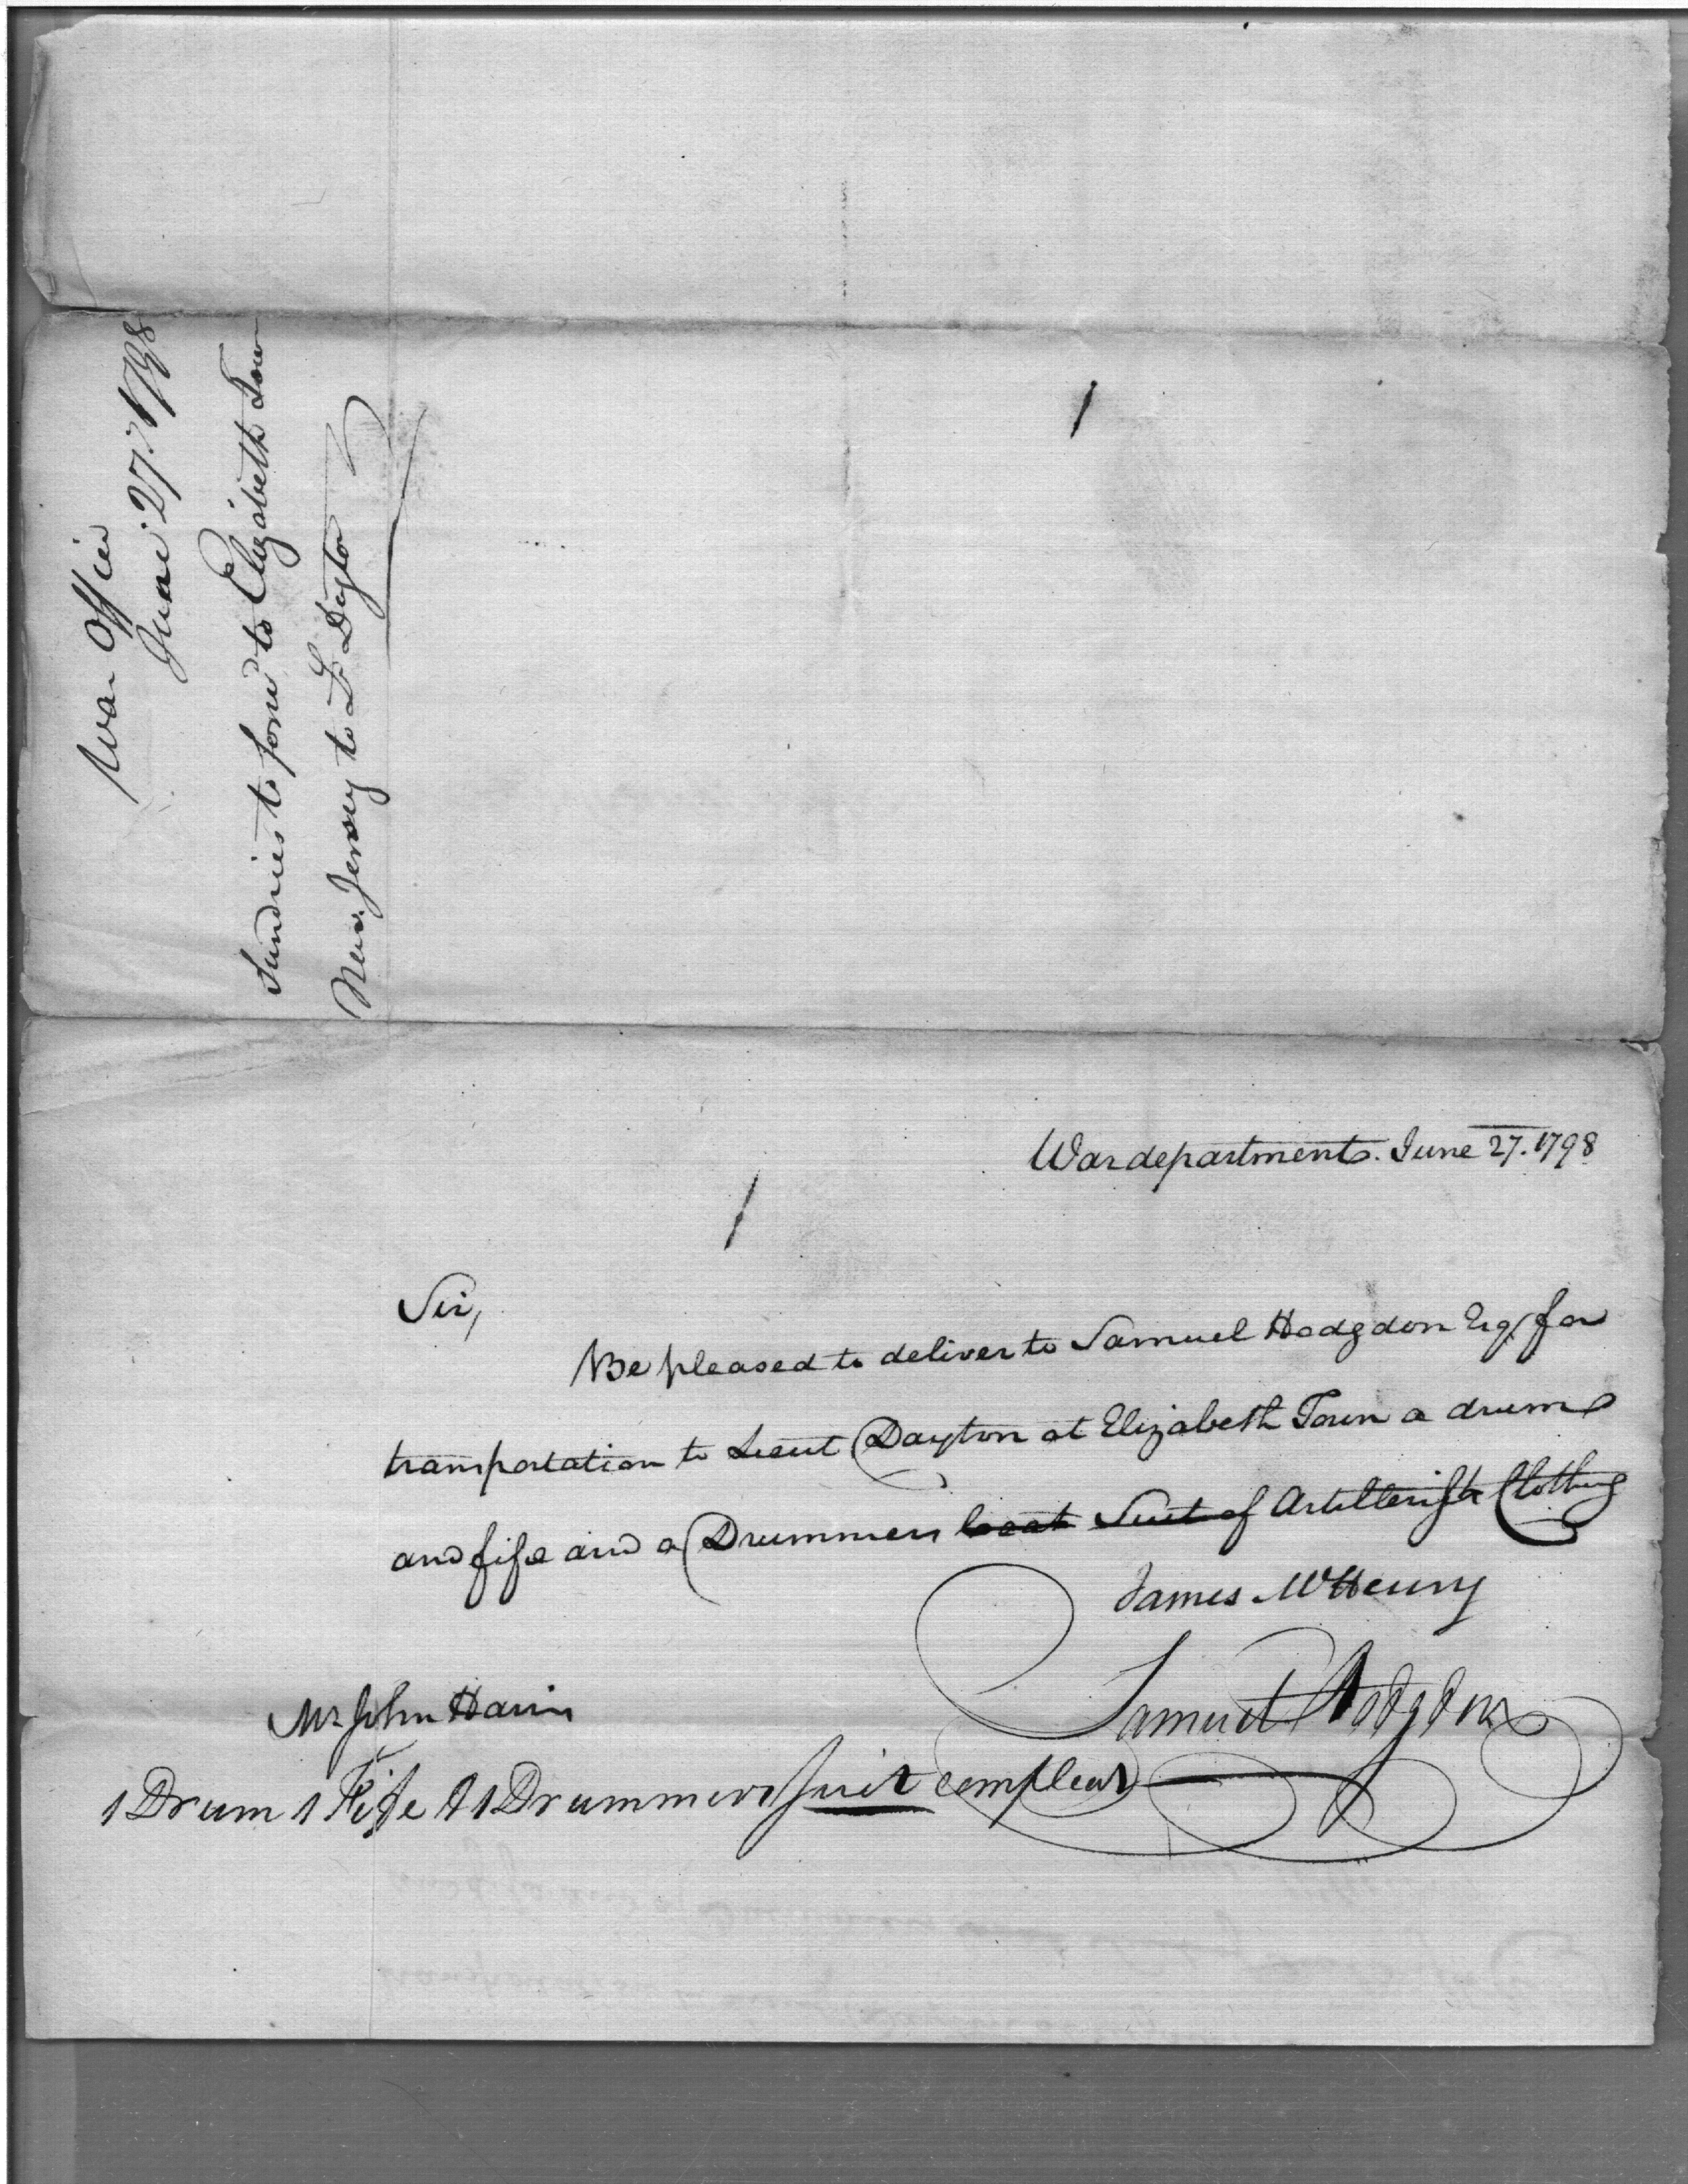 War Office
June 27. 1798
Sundries to forw'd to Elizabeth Town
New Jersey to Lt Dayton
War department. June 27. 1798
Sir,
Be pleased to deliver to Samuel Hodgdon Esq. for
transportation to Lieut Dayton at Elizabeth Town a drum
and fife and a Drummers coat Suit of Artillerists Clothing
James McHenry
Samuel Hodgdon
Mr John Harris
1 Drum 1 Fife & 1 Drummers suit compleat